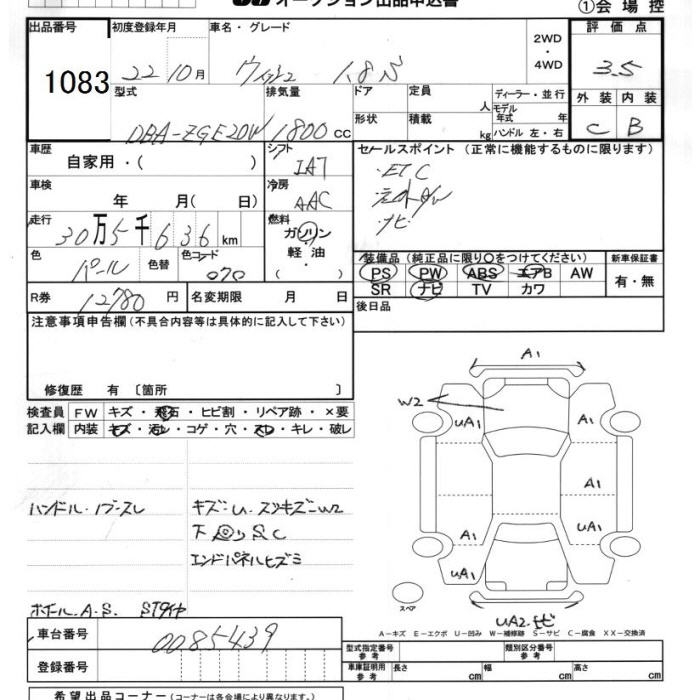 オークション出品申込書
①会場控
出品番号 初度登録年月 車名・グレード 評価点
1083 22 10月 ウィッシュ 1.8S 2WD・4WD 3.5
型式 排気量 ドア 定員 人 ディーラー・並行 外装 内装
DBA-ZGE20W 1800cc 形状 積載 kg モデル年式 年 C B
ハンドル 左・右
車歴 自家用・( ) シフト IAT セールスポイント (正常に機能するものに限ります)
・ETC
車検 年 月( 日) 冷房 AAC
・ナビ
走行 30万5千636km 燃料 ガソリン・軽油・
色 パール 色替 色コード 070 装備品 (純正品に限り○をつけてください) 新車保証書
PS PW ABS エアB AW 有・無
SR ナビ TV カワ
R券 12780円 名変期限 月 日 後日品
注意事項申告欄(不具合内容等は具体的に記入して下さい)
修復歴 有 〔箇所 〕
検査員 FW キズ・飛石・ヒビ割・リペア跡・×要
記入欄 内装 キズ・汚レ・コゲ・穴・スレ・キレ・破レ
A1
W2
UA1 A1
A1
A1 UA1
UA1
スペア
UA2.
ハンドル・ノブ-スレ キズ-U・スリキズ-W2
下 S C
エンドパネルヒズミ
ホイール.A.S. STタイヤ
A-キズ E-エクボ U-凹み W-補修跡 S-サビ C-腐食 XX-交換済
車台番号 0085439
型式指定番号 参考 類別区分番号 参考
登録番号
車庫証明用 参考 長さ cm 幅 cm 高さ cm
希望出品コーナー(コーナーは各会場により異なります)